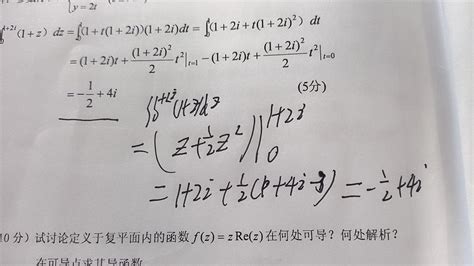 y = 2t
∫₀^{1+2i}(1+z) dz = ∫(1+t(1+2i))(1+2i)dt = ∫(1+2i+t(1+2i)²) dt
= (1+2i)t + (1+2i)²/2 t²|_{t=1} − (1+2i)t + (1+2i)²/2 t²|_{t=0}
= −1/2 + 4i (5分)
∫₀^{1+2i}(1+z)dz
= (z+½z²)|₀^{1+2i}
= 1+2i+½(1+4i−4) = −½+4i
10 分）试讨论定义于复平面内的函数 f(z) = z Re(z) 在何处可导？何处解析？
在可导点求其导函数